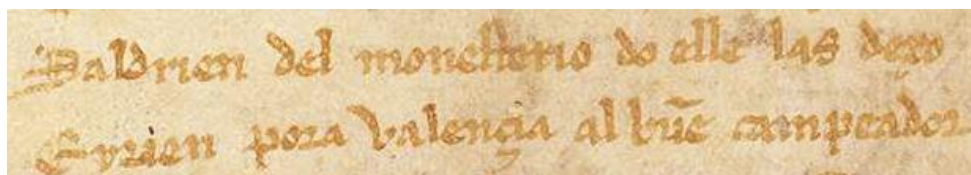 Saldrien del monesterio do elle las dexo
E yrien pora valençia al buẽ campeador